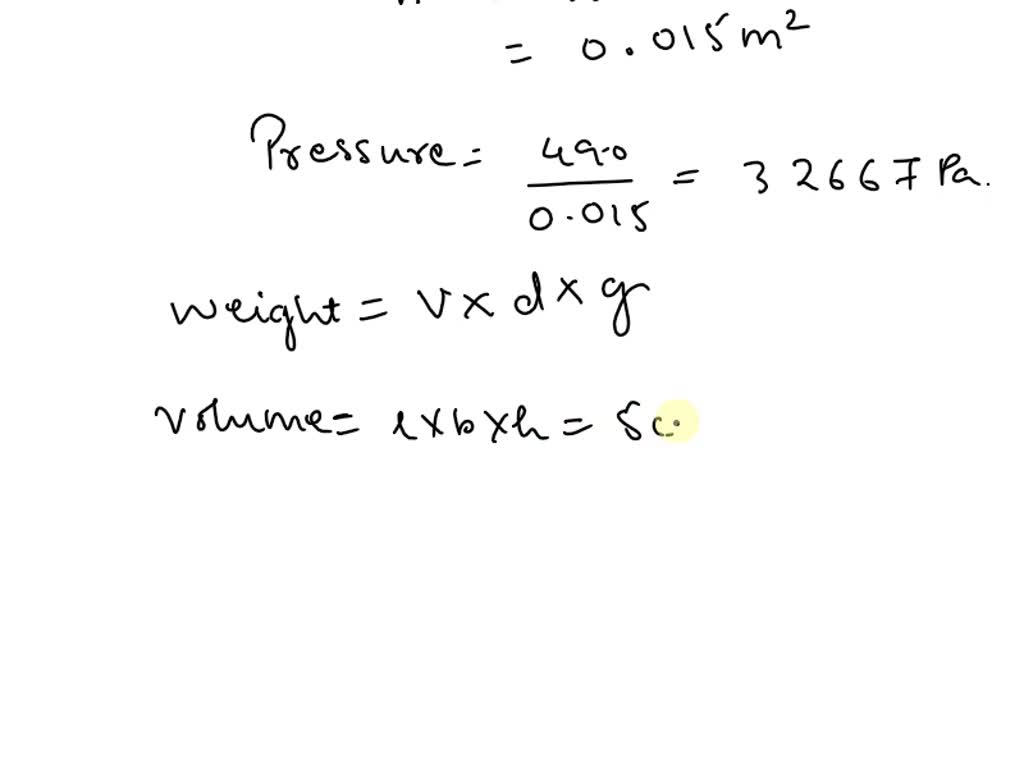 = 0.015 m²
Pressure = 490 / 0.015 = 32667 Pa.
weight = V x d x g
volume = l x b x h =